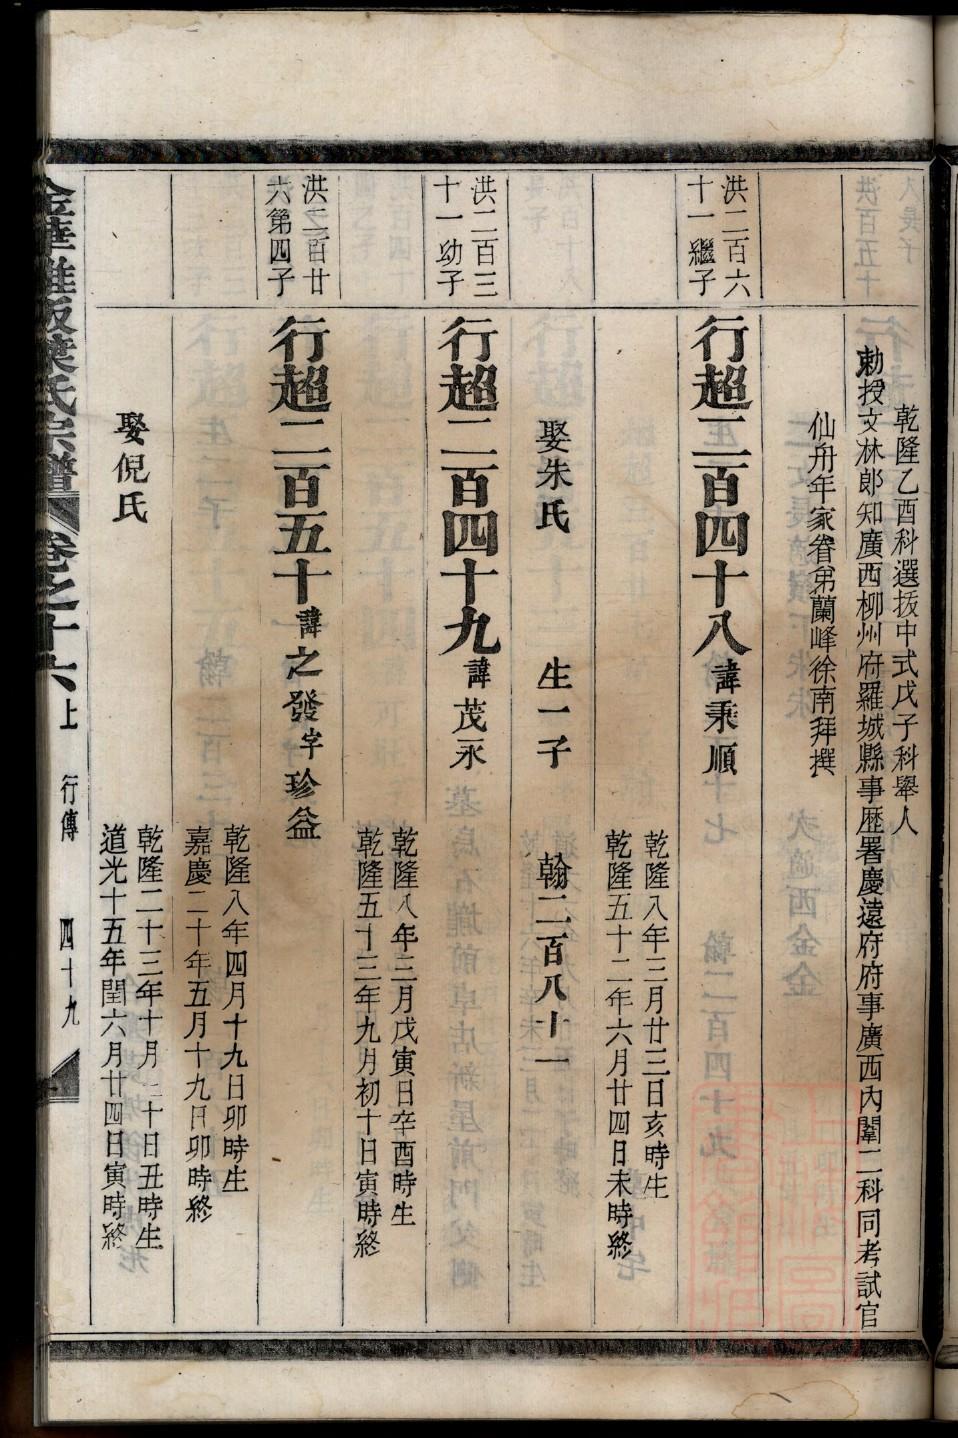 乾隆乙酉科選拔中式戊子科舉人
勅授文林郎知廣西柳州府羅城縣事歷署慶遠府府事廣西內闈二科同考試官
仙舟年家眷弟蘭峰徐南拜撰
洪二百六
十一繼子
行超二百四十八 諱秉順
乾隆八年三月廿三日亥時生
乾隆五十二年六月廿四日未時終
娶朱氏 生一子 翰二百八十一
洪二百三
十一幼子
行超二百四十九 諱茂永
乾隆八年三月戊寅日辛酉時生
乾隆五十三年九月初十日寅時終
洪二百廿
六第四子
行超二百五十 諱之發 字珍益
乾隆八年四月十九日卯時生
嘉慶二十年五月十九日卯時終
娶倪氏
乾隆二十三年十月二十日丑時生
道光十五年閏六月廿四日寅時終
葉氏宗譜 卷之十六上 行傳 四十九